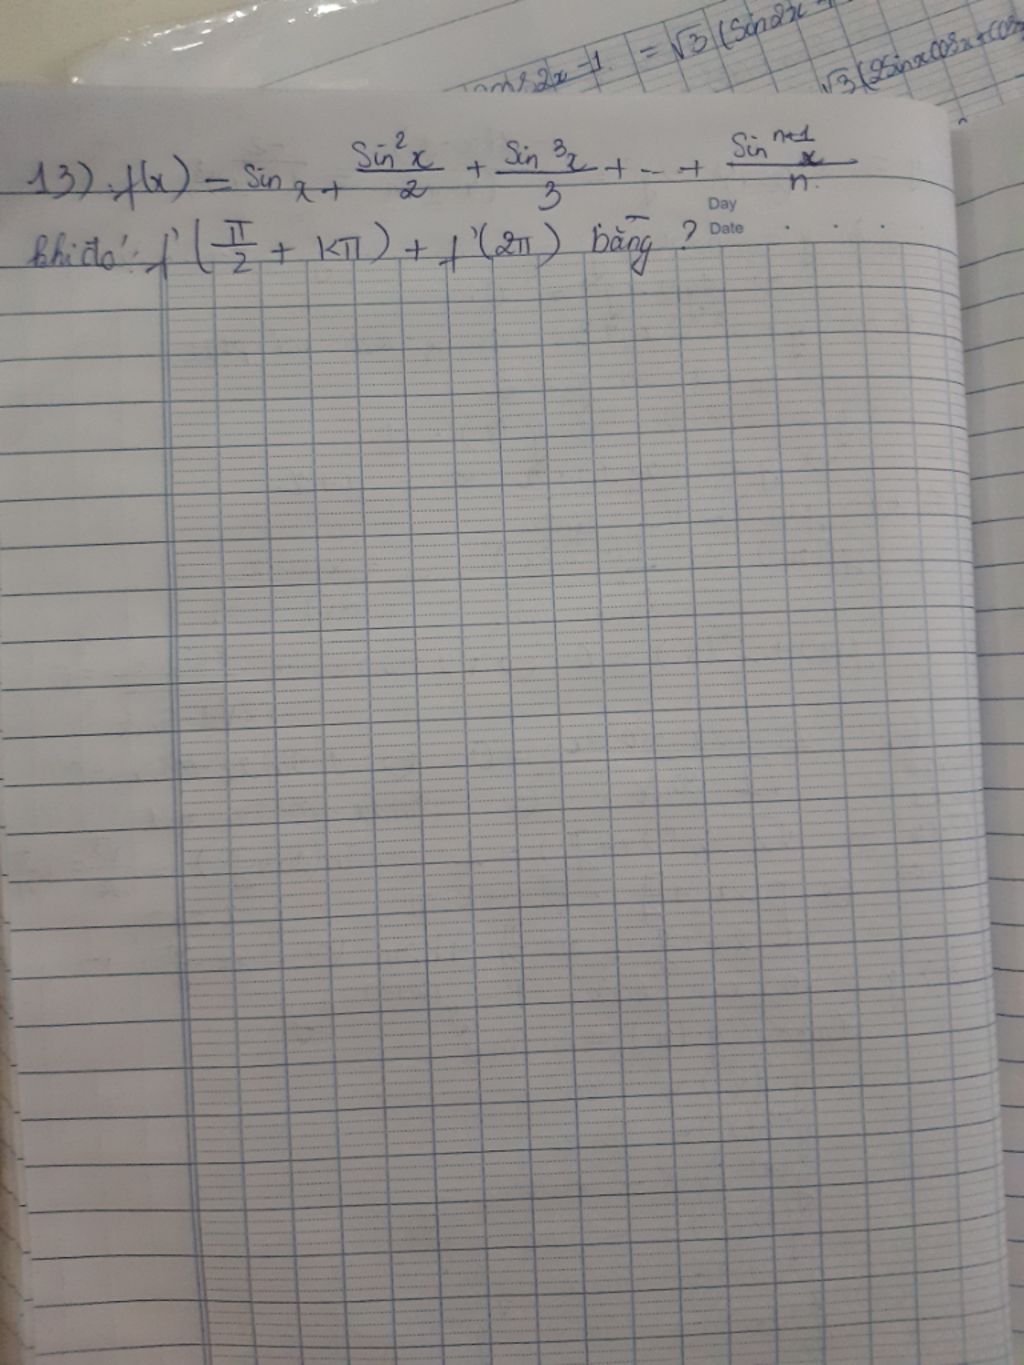 2x - 1 = √3 (Sin2x
√3 (2Sinxcosx + cos
13) f(x) = Sin x + Sin²x/2 + Sin³x/3 + - + Sinⁿ⁺¹x/n
Day
khi đó: f'(π/2 + kπ) + f'(2π) bằng ?
Date